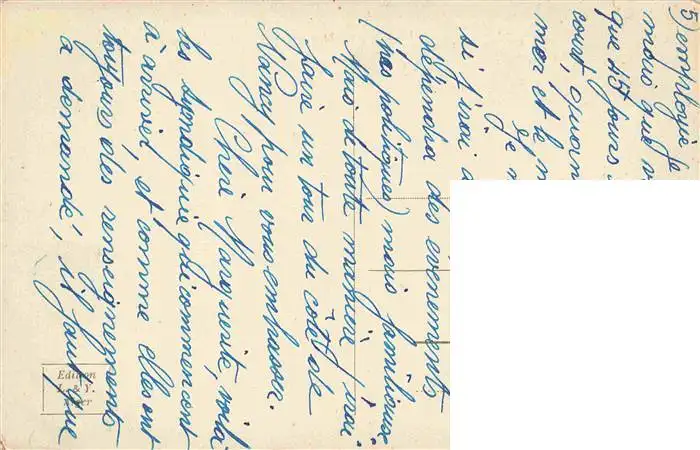 5) emploie je
mais que v
que 15 jours
court, quan
mer et le m
Je n
si j'irai d
dépendra des évènements
(pas politiques) mais familiaux
Mais de toute manière j'irai
faire un tour du côté de
Nancy pour vous embrasser.
Chère Marguerite, voilà
les syndiqués qui commencent
à arriver, et comme elles ont
toujours des renseignements
à demander, il faut que
Edition
L. & Y.